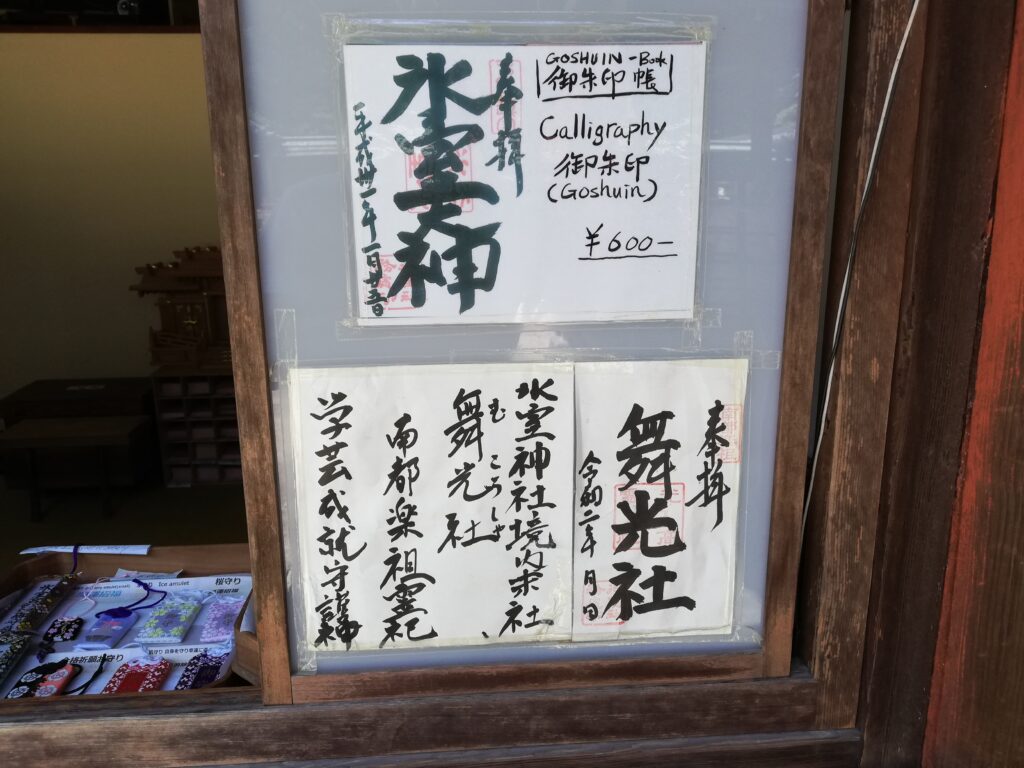 GOSHUIN-Book
御朱印帳
Calligraphy
御朱印
(Goshuin)
¥600-
奉拝
氷室大神
平成卅一年一月廿五日
奉拝
舞光社
令和二年 月 日
氷室神社境内末社
むこうしゃ
舞光社
南都楽祖霊祀
学芸成就守護神
Ice amulet
桜守り
合格祈願お守り